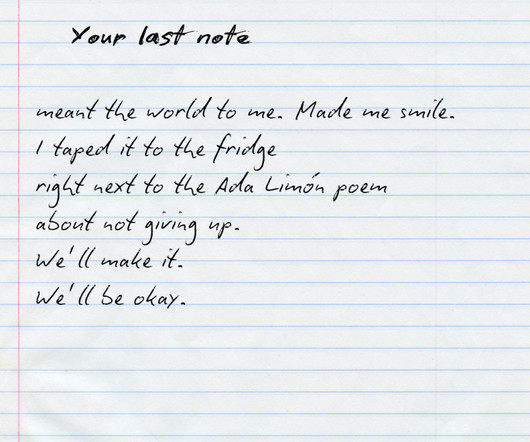 Your last note
meant the world to me. Made me smile.
I taped it to the fridge
right next to the Ada Limón poem
about not giving up.
We'll make it.
We'll be okay.